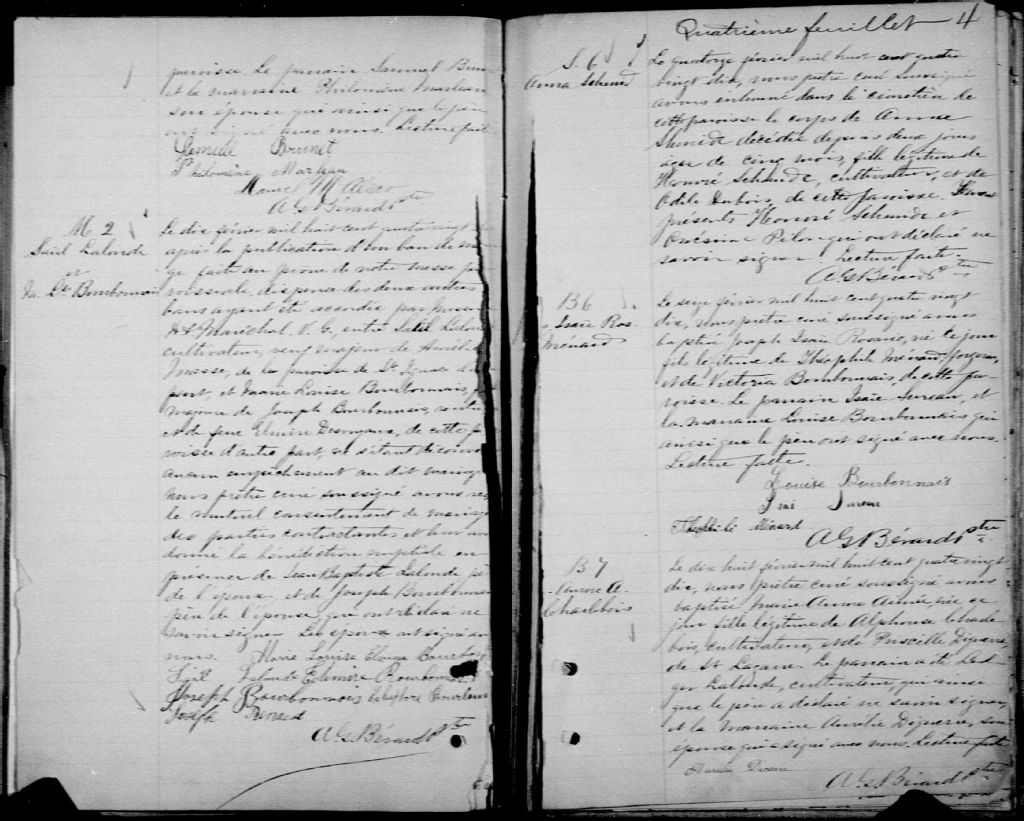 paroisse. Le parrain Samuel Brun
et la marraine Philomène Marleau
son épouse qui ainsi que le pè
ont signé avec nous. Lecture faite
Brunet
Philomène Marleau
A G Bérard Ptre
M 2
Lalonde
et
Ma. Ls. Bourbonnais
Le dix février mil huit cent quatre vingt
après la publication d'un ban de ma
ge faite au prone de notre messe pa
roissiale, dispense des deux autres
bans ayant été accordée par
Maréchal, V. G. entre Lalond
cultivateur, veuf majeur de
Masse, de la paroisse de St
part, et Marie Louise Bourbonnais, f
majeure de Joseph Bourbonnais,
et de feue Elmire de cette p
roisse d'autre part, ne s'étant découv
aucun empêchement au dit mariage
nous prêtre curé soussigné avons re
le mutuel consentement de mariage
des parties contractantes et leur av
donné la bénédiction nuptiale en
présence de Jean Baptiste Lalonde pè
de l'époux, et de Joseph Bourbonna
père de l'épouse, qui ont déclaré ne
savoir signer. Les époux ont signé av
nous. Marie Louise Bourbon
Lalonde Elmire Bourbonnais
Joseph Bourbonnais
Joseph
A. G. Bérard Ptre
Quatrième feuillet 4
S. 6
Anna Schmid
Le quatorze février mil huit cent quatre
vingt dix, nous prêtre curé soussigné
avons inhumé dans le cimetière de
cette paroisse le corps de Anna
décédée depuis deux jours
âgée de cinq mois, fille légitime de
Honoré cultivateur, et de
Odile Dubois, de cette paroisse.
présents Honoré et
Onésime Pilon qui ont déclaré ne
savoir signer. Lecture faite.
A G Bérard Ptre
B 6
Isaïe Ros.
Ménard
Le seize février mil huit cent quatre vingt
dix, nous prêtre curé soussigné avons
baptisé Joseph Isaïe Rosario, né le jour
fils légitime de Théophile Ménard, forgeron,
et de Victoria Bourbonnais, de cette pa
roisse. Le parrain Isaïe et
la marraine Louise Bourbonnais qui
ainsi que le père ont signé avec nous.
Lecture faite.
Louise Bourbonnais
Ménard
A G Bérard Ptre
B 7
Aurore A.
Charlebois
Le dix huit février mil huit cent quatre vingt
dix, nous prêtre curé soussigné avons
baptisé Marie Aurore Aimée, née ce
jour fille légitime de Alphonse
bois, cultivateur, et de Priscille
de St Lazare. Le parrain a été
Lalonde, cultivateur, qui ainsi
que le père a déclaré ne savoir signer,
et la marraine Aurélie son
épouse qui a signé avec nous. Lecture faite
A. G. Bérard Ptre